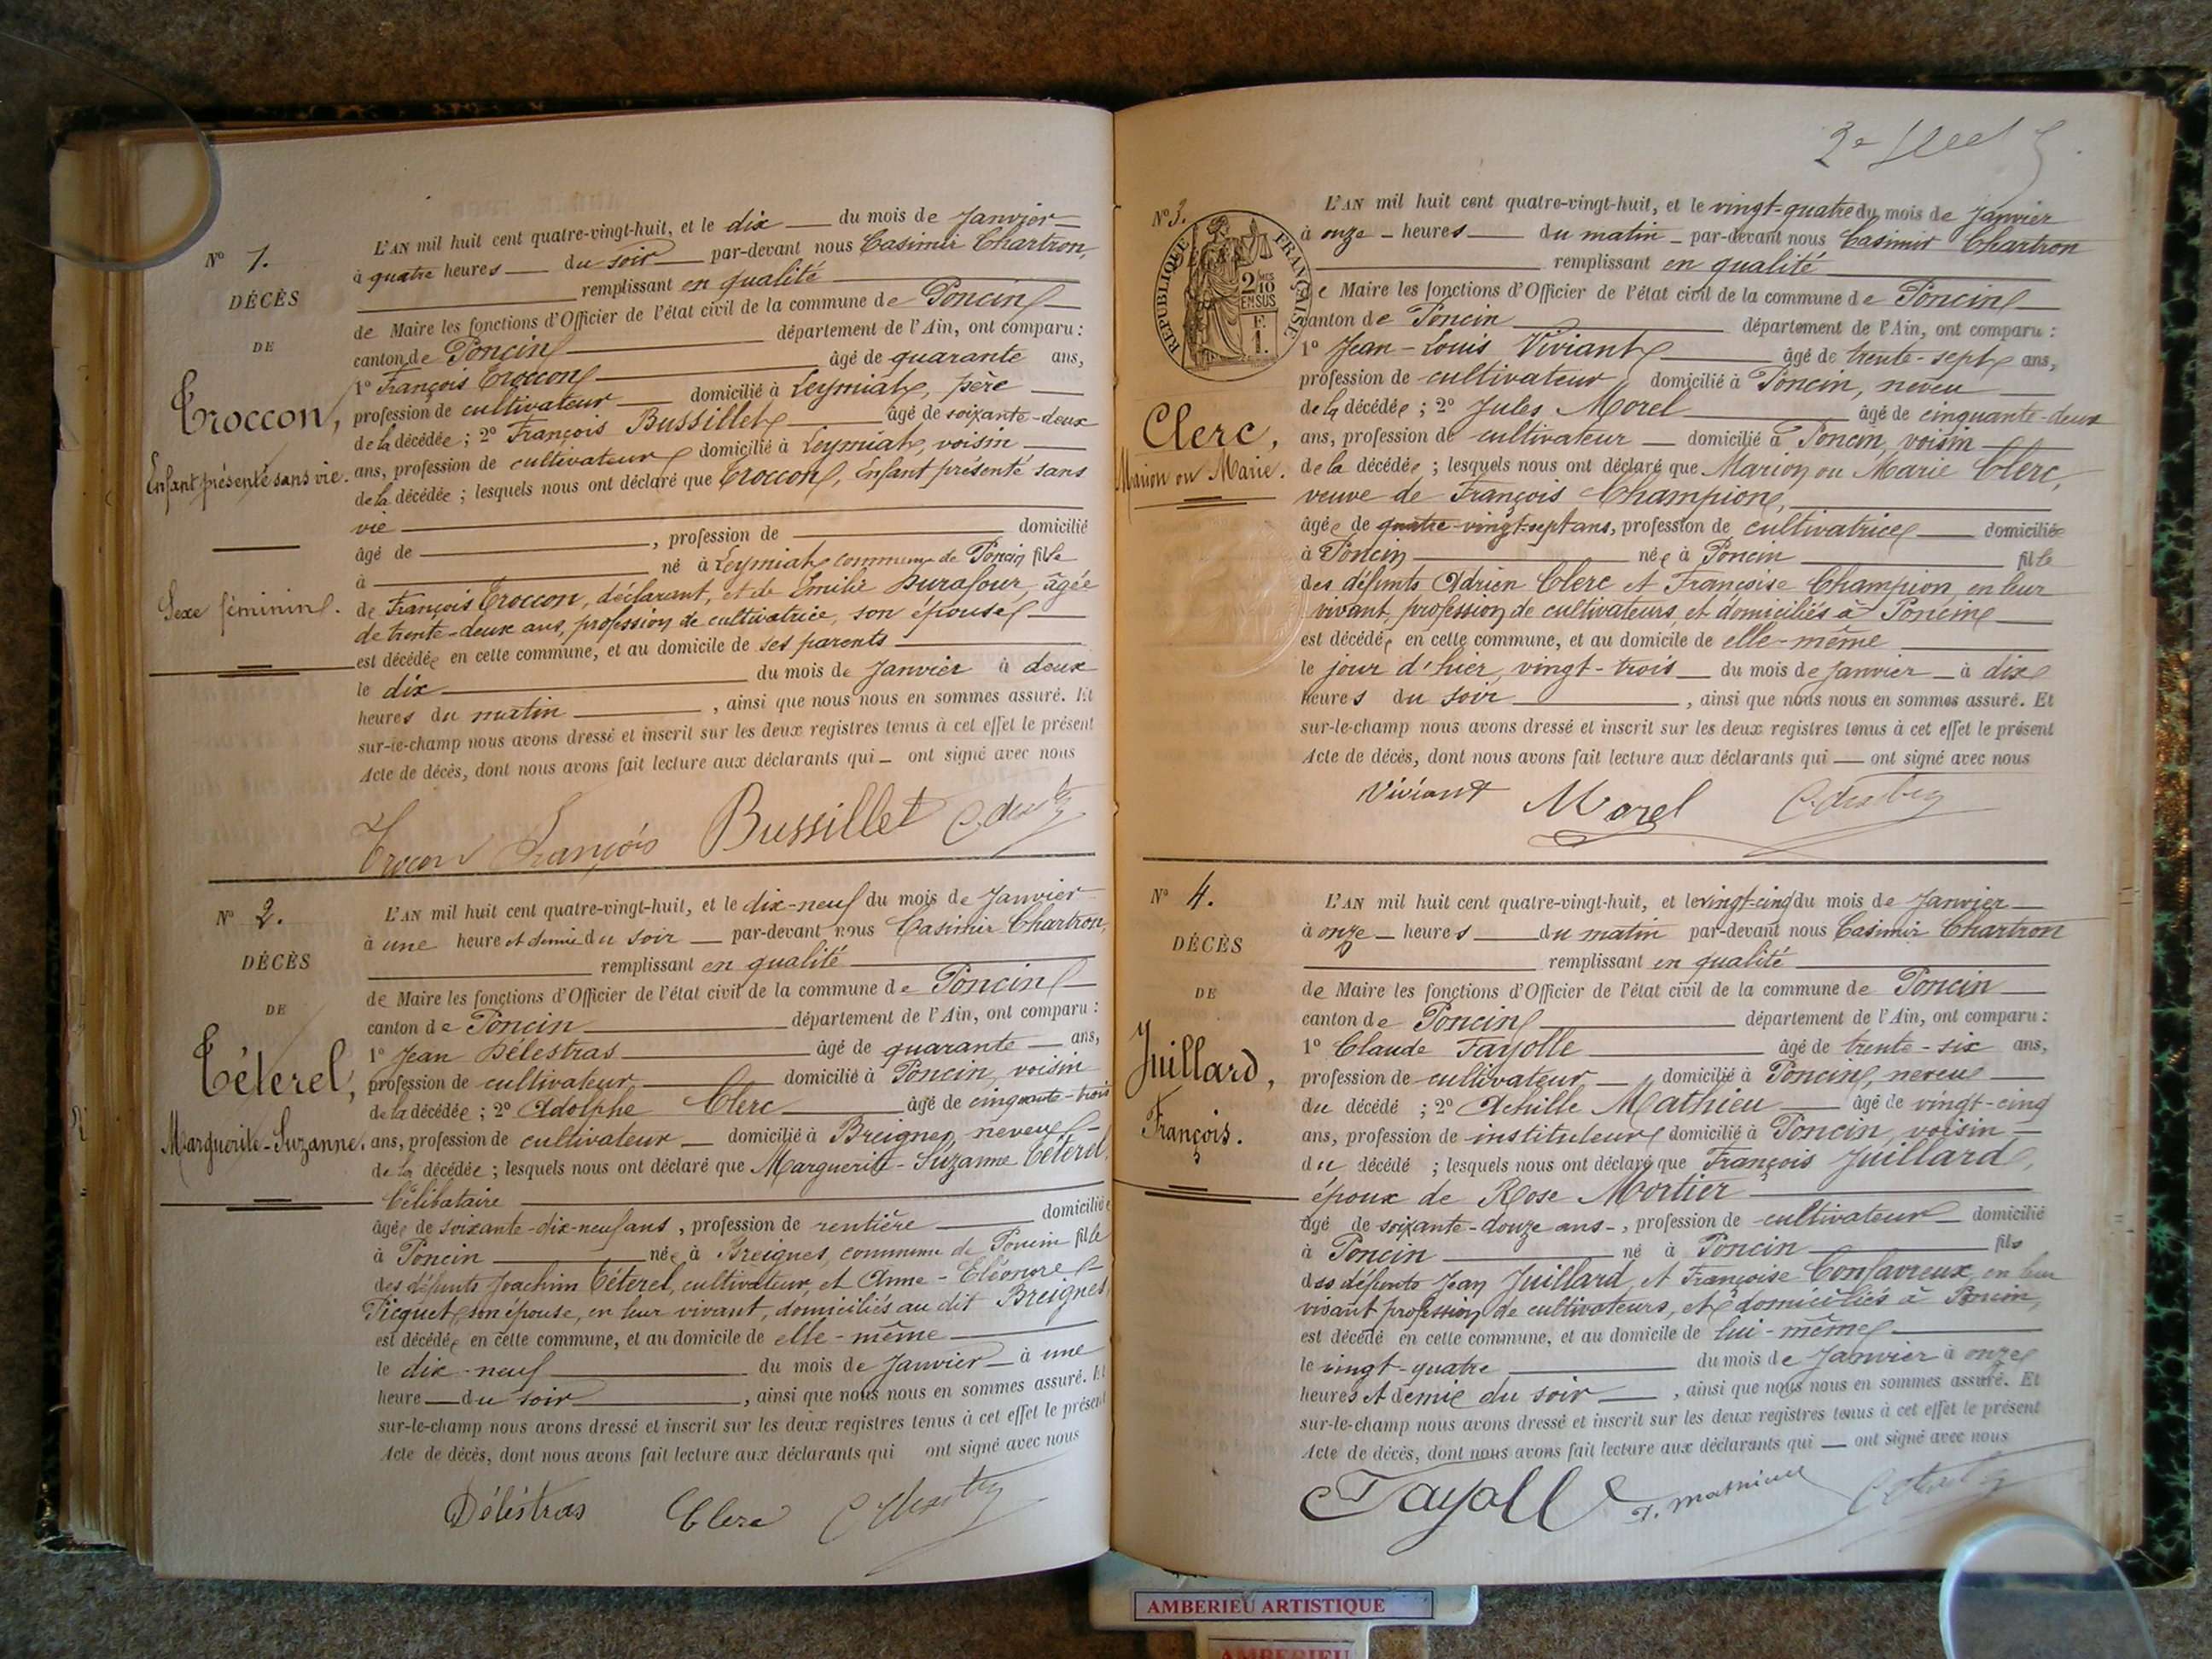 N° 1.
DÉCÈS
DE
Croccon,
Enfant présenté sans vie.
Sexe féminin.
L'AN mil huit cent quatre-vingt-huit, et le dix du mois de Janvier
à quatre heures du soir par-devant nous Casimir Chartron,
remplissant en qualité
de Maire les fonctions d'Officier de l'état civil de la commune de Poncin
canton de Poncin département de l'Ain, ont comparu :
1° François Croccon âgé de quarante ans,
profession de cultivateur domicilié à Leymiat, père
de la décédée ; 2° François Bussillet âgé de soixante-deux
ans, profession de cultivateur domicilié à Leymiat, voisin
de la décédée ; lesquels nous ont déclaré que Croccon, Enfant présenté sans
vie
âgé de , profession de domicilié
à né à Leymiat commune de Poncin fille
de François Croccon, déclarant, et de Emilie Durafour, âgée
de trente-deux ans, profession de cultivatrice, son épouse
est décédée en cette commune, et au domicile de ses parents
le dix du mois de Janvier à deux
heures du matin , ainsi que nous nous en sommes assuré. Et
sur-le-champ nous avons dressé et inscrit sur les deux registres tenus à cet effet le présent
Acte de décès, dont nous avons fait lecture aux déclarants qui ont signé avec nous
François Bussillet
N° 2.
DÉCÈS
DE
Téterel,
Marguerite-Suzanne.
L'AN mil huit cent quatre-vingt-huit, et le dix-neuf du mois de Janvier
à une heure et demie du soir par-devant nous Casimir Chartron,
remplissant en qualité
de Maire les fonctions d'Officier de l'état civil de la commune de Poncin
canton de Poncin département de l'Ain, ont comparu :
1° Jean Délestras âgé de quarante ans,
profession de cultivateur domicilié à Poncin, voisin
de la décédée ; 2° Adolphe Clerc âgé de cinquante-trois
ans, profession de cultivateur domicilié à Breignes, neveu
de la décédée ; lesquels nous ont déclaré que Marguerite-Suzanne Téterel,
Célibataire
âgée de soixante-dix-neuf ans, profession de rentière domiciliée
à Poncin née à Breignes, commune de Poncin fille
des défunts Joachim Téterel, cultivateur, et Anne-Eléonore
Picquet, son épouse, en leur vivant, domiciliés au dit Breignes,
est décédée en cette commune, et au domicile de elle-même
le dix-neuf du mois de Janvier à une
heure du soir , ainsi que nous nous en sommes assuré. Et
sur-le-champ nous avons dressé et inscrit sur les deux registres tenus à cet effet le présent
Acte de décès, dont nous avons fait lecture aux déclarants qui ont signé avec nous
Déléstras Clerc
N° 3.
RÉPUBLIQUE FRANÇAISE
2/10 EN SUS
F. 1.
Clerc,
Marion ou Marie.
L'AN mil huit cent quatre-vingt-huit, et le vingt-quatre du mois de Janvier
à onze heures du matin par-devant nous Casimir Chartron
remplissant en qualité
e Maire les fonctions d'Officier de l'état civil de la commune de Poncin
canton de Poncin département de l'Ain, ont comparu :
1° Jean-Louis Viviant âgé de trente-sept ans,
profession de cultivateur domicilié à Poncin, neveu
de la décédée ; 2° Jules Morel âgé de cinquante-deux
ans, profession de cultivateur domicilié à Poncin, voisin
de la décédée ; lesquels nous ont déclaré que Marion ou Marie Clerc,
veuve de François Champion,
âgée de quatre-vingt-sept ans, profession de cultivatrice domiciliée
à Poncin née à Poncin fille
des défunts Adrien Clerc et Françoise Champion, en leur
vivant, profession de cultivateurs, et domiciliés à Poncin
est décédée en cette commune, et au domicile de elle-même
le jour d'hier, vingt-trois du mois de Janvier à dix
heures du soir , ainsi que nous nous en sommes assuré. Et
sur-le-champ nous avons dressé et inscrit sur les deux registres tenus à cet effet le présent
Acte de décès, dont nous avons fait lecture aux déclarants qui ont signé avec nous
Viviant Morel
N° 4.
DÉCÈS
DE
Juillard,
François.
L'AN mil huit cent quatre-vingt-huit, et le vingt-cinq du mois de Janvier
à onze heures du matin par-devant nous Casimir Chartron
remplissant en qualité
de Maire les fonctions d'Officier de l'état civil de la commune de Poncin
canton de Poncin département de l'Ain, ont comparu :
1° Claude Fayolle âgé de trente-six ans,
profession de cultivateur domicilié à Poncin, neveu
du décédé ; 2° Achille Mathieu âgé de vingt-cinq
ans, profession de instituteur domicilié à Poncin, voisin
du décédé ; lesquels nous ont déclaré que François Juillard,
époux de Rose Mortier
âgé de soixante-douze ans, profession de cultivateur domicilié
à Poncin né à Poncin fils
des défunts Jean Juillard, et Françoise Confavreux, en leur
vivant profession de cultivateurs, et domiciliés à Poncin,
est décédé en cette commune, et au domicile de lui-même
le vingt-quatre du mois de Janvier à onze
heures et demie du soir , ainsi que nous nous en sommes assuré. Et
sur-le-champ nous avons dressé et inscrit sur les deux registres tenus à cet effet le présent
Acte de décès, dont nous avons fait lecture aux déclarants qui ont signé avec nous
Fayolle Mathieu
AMBERIEU ARTISTIQUE
AMBERIEU